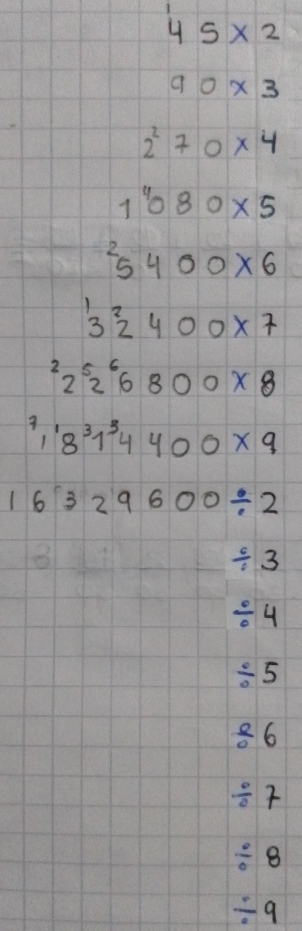 45 × 2
90 × 3
270 × 4
1080 × 5
5400 × 6
32400 × 7
226800 × 8
1814400 × 9
16329600 ÷ 2
÷ 3
÷ 4
÷ 5
÷ 6
÷ 7
÷ 8
÷ 9